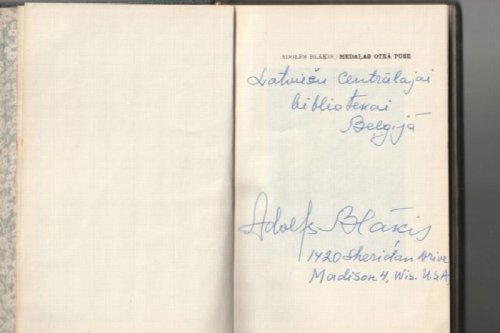 ADOLFS BLĀĶIS / MEDAĻAS OTRĀ PUSE
Latviešu Centrālajai
bibliotekai
Beļģijā
Adolfs Blāķis
1420 Sheridan Drive
Madison 4, Wis. U.S.A.